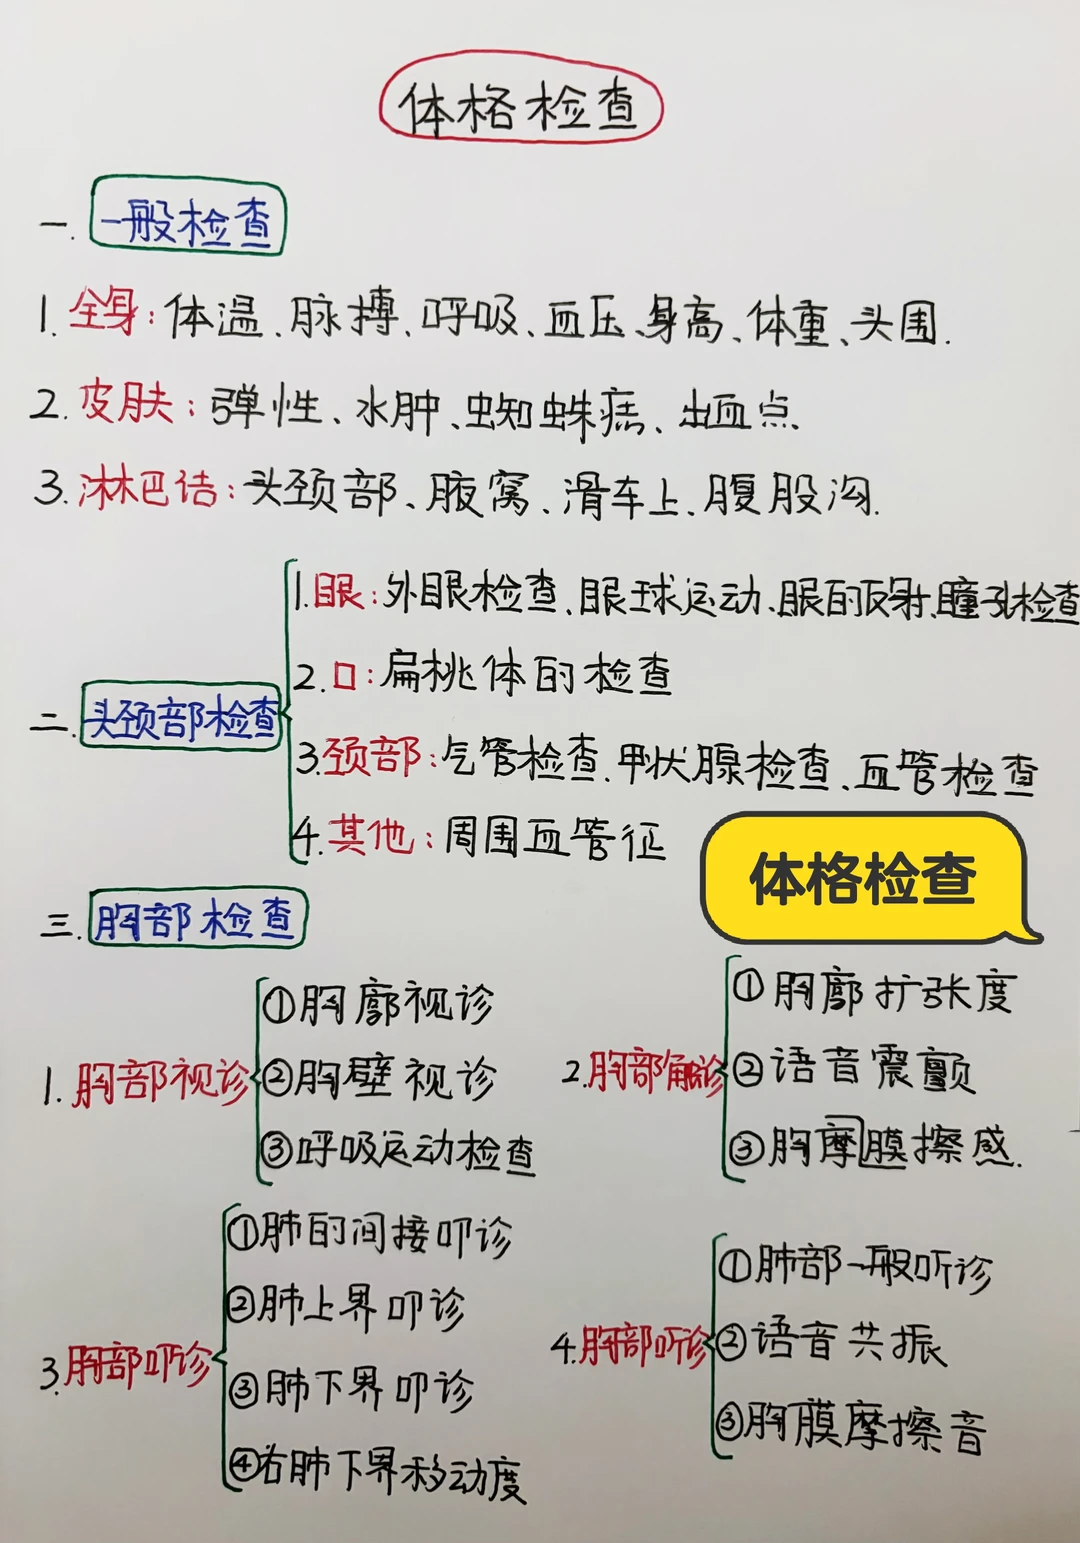 体格检查
一. 一般检查
1. 全身: 体温、脉搏、呼吸、血压、身高、体重、头围.
2. 皮肤: 弹性、水肿、蜘蛛痣、出血点
3. 淋巴结: 头颈部、腋窝、滑车上、腹股沟.
二. 头颈部检查
1. 眼: 外眼检查、眼球运动、眼的反射、瞳孔检查
2. 口: 扁桃体的检查
3. 颈部: 气管检查、甲状腺检查、血管检查
4. 其他: 周围血管征
体格检查
三. 胸部检查
1. 胸部视诊
①胸廓视诊
②胸壁视诊
③呼吸运动检查
2. 胸部触诊
①胸廓扩张度
②语音震颤
③胸摩膜擦感.
3. 胸部叩诊
①肺的间接叩诊
②肺上界叩诊
③肺下界叩诊
④右肺下界移动度
4. 胸部听诊
①肺部一般听诊
②语音共振
③胸膜摩擦音